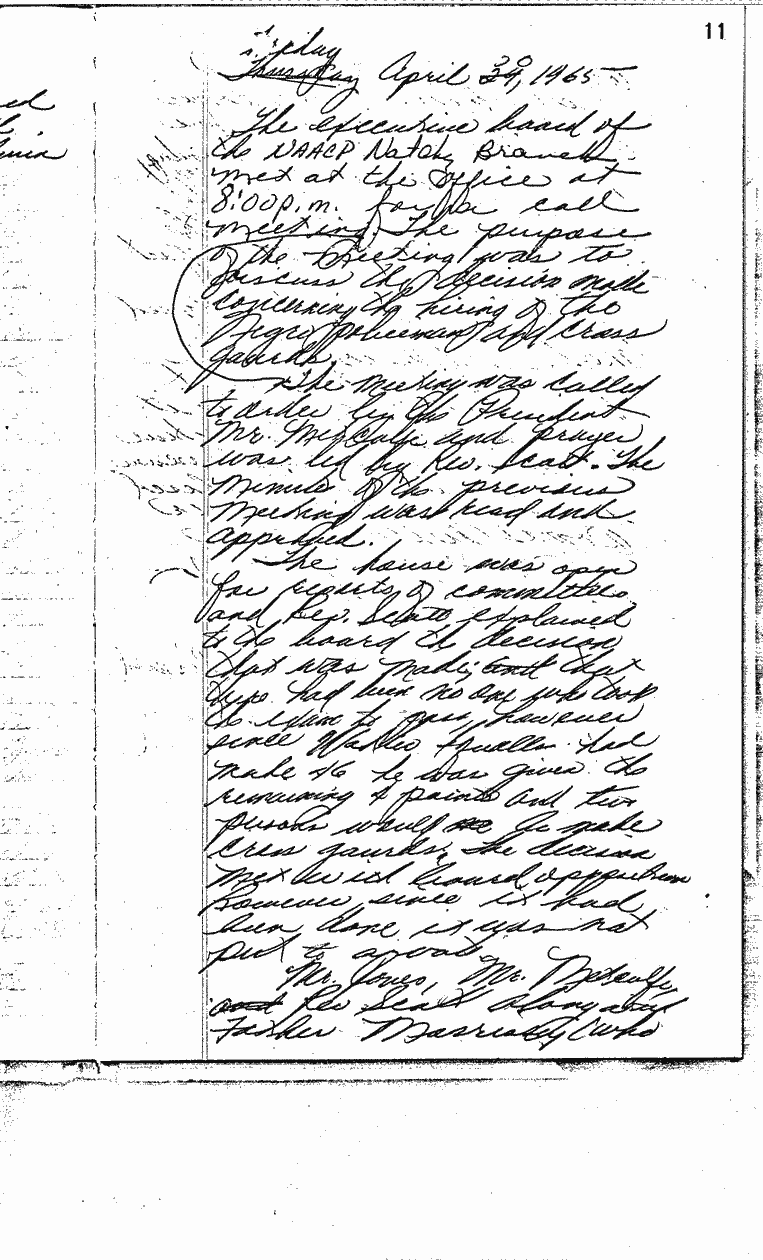 11
Friday
Thursday April 30, 1965
ed
The executive board of
the NAACP Natchez Branch
met at the office at
8:00p.m. for a call
meeting. The purpose
of the meeting was to
discuss the decision made
concerning the hiring of the
Negro policeman and cross
gaurds.
The meeting was called
to order by the President
Mr. Metcalfe and prayer
was led by Rev. Scott. The
minutes of the previous
meeting was read and
approved.
The house was open
for reports of committees
and Rev. Scott explained
to the board the decision
that was made; and that
there had been no one who took
the exam to pass, however
since had
made 46 he was given the
remaining 4 points and two
persons would be made
cross gaurds. The decision
met with board opposition
however since it had
been done it was not
put to a vote.
Mr. Jones, Mr. Metcalfe,
and Rev Scott along with
Father (who